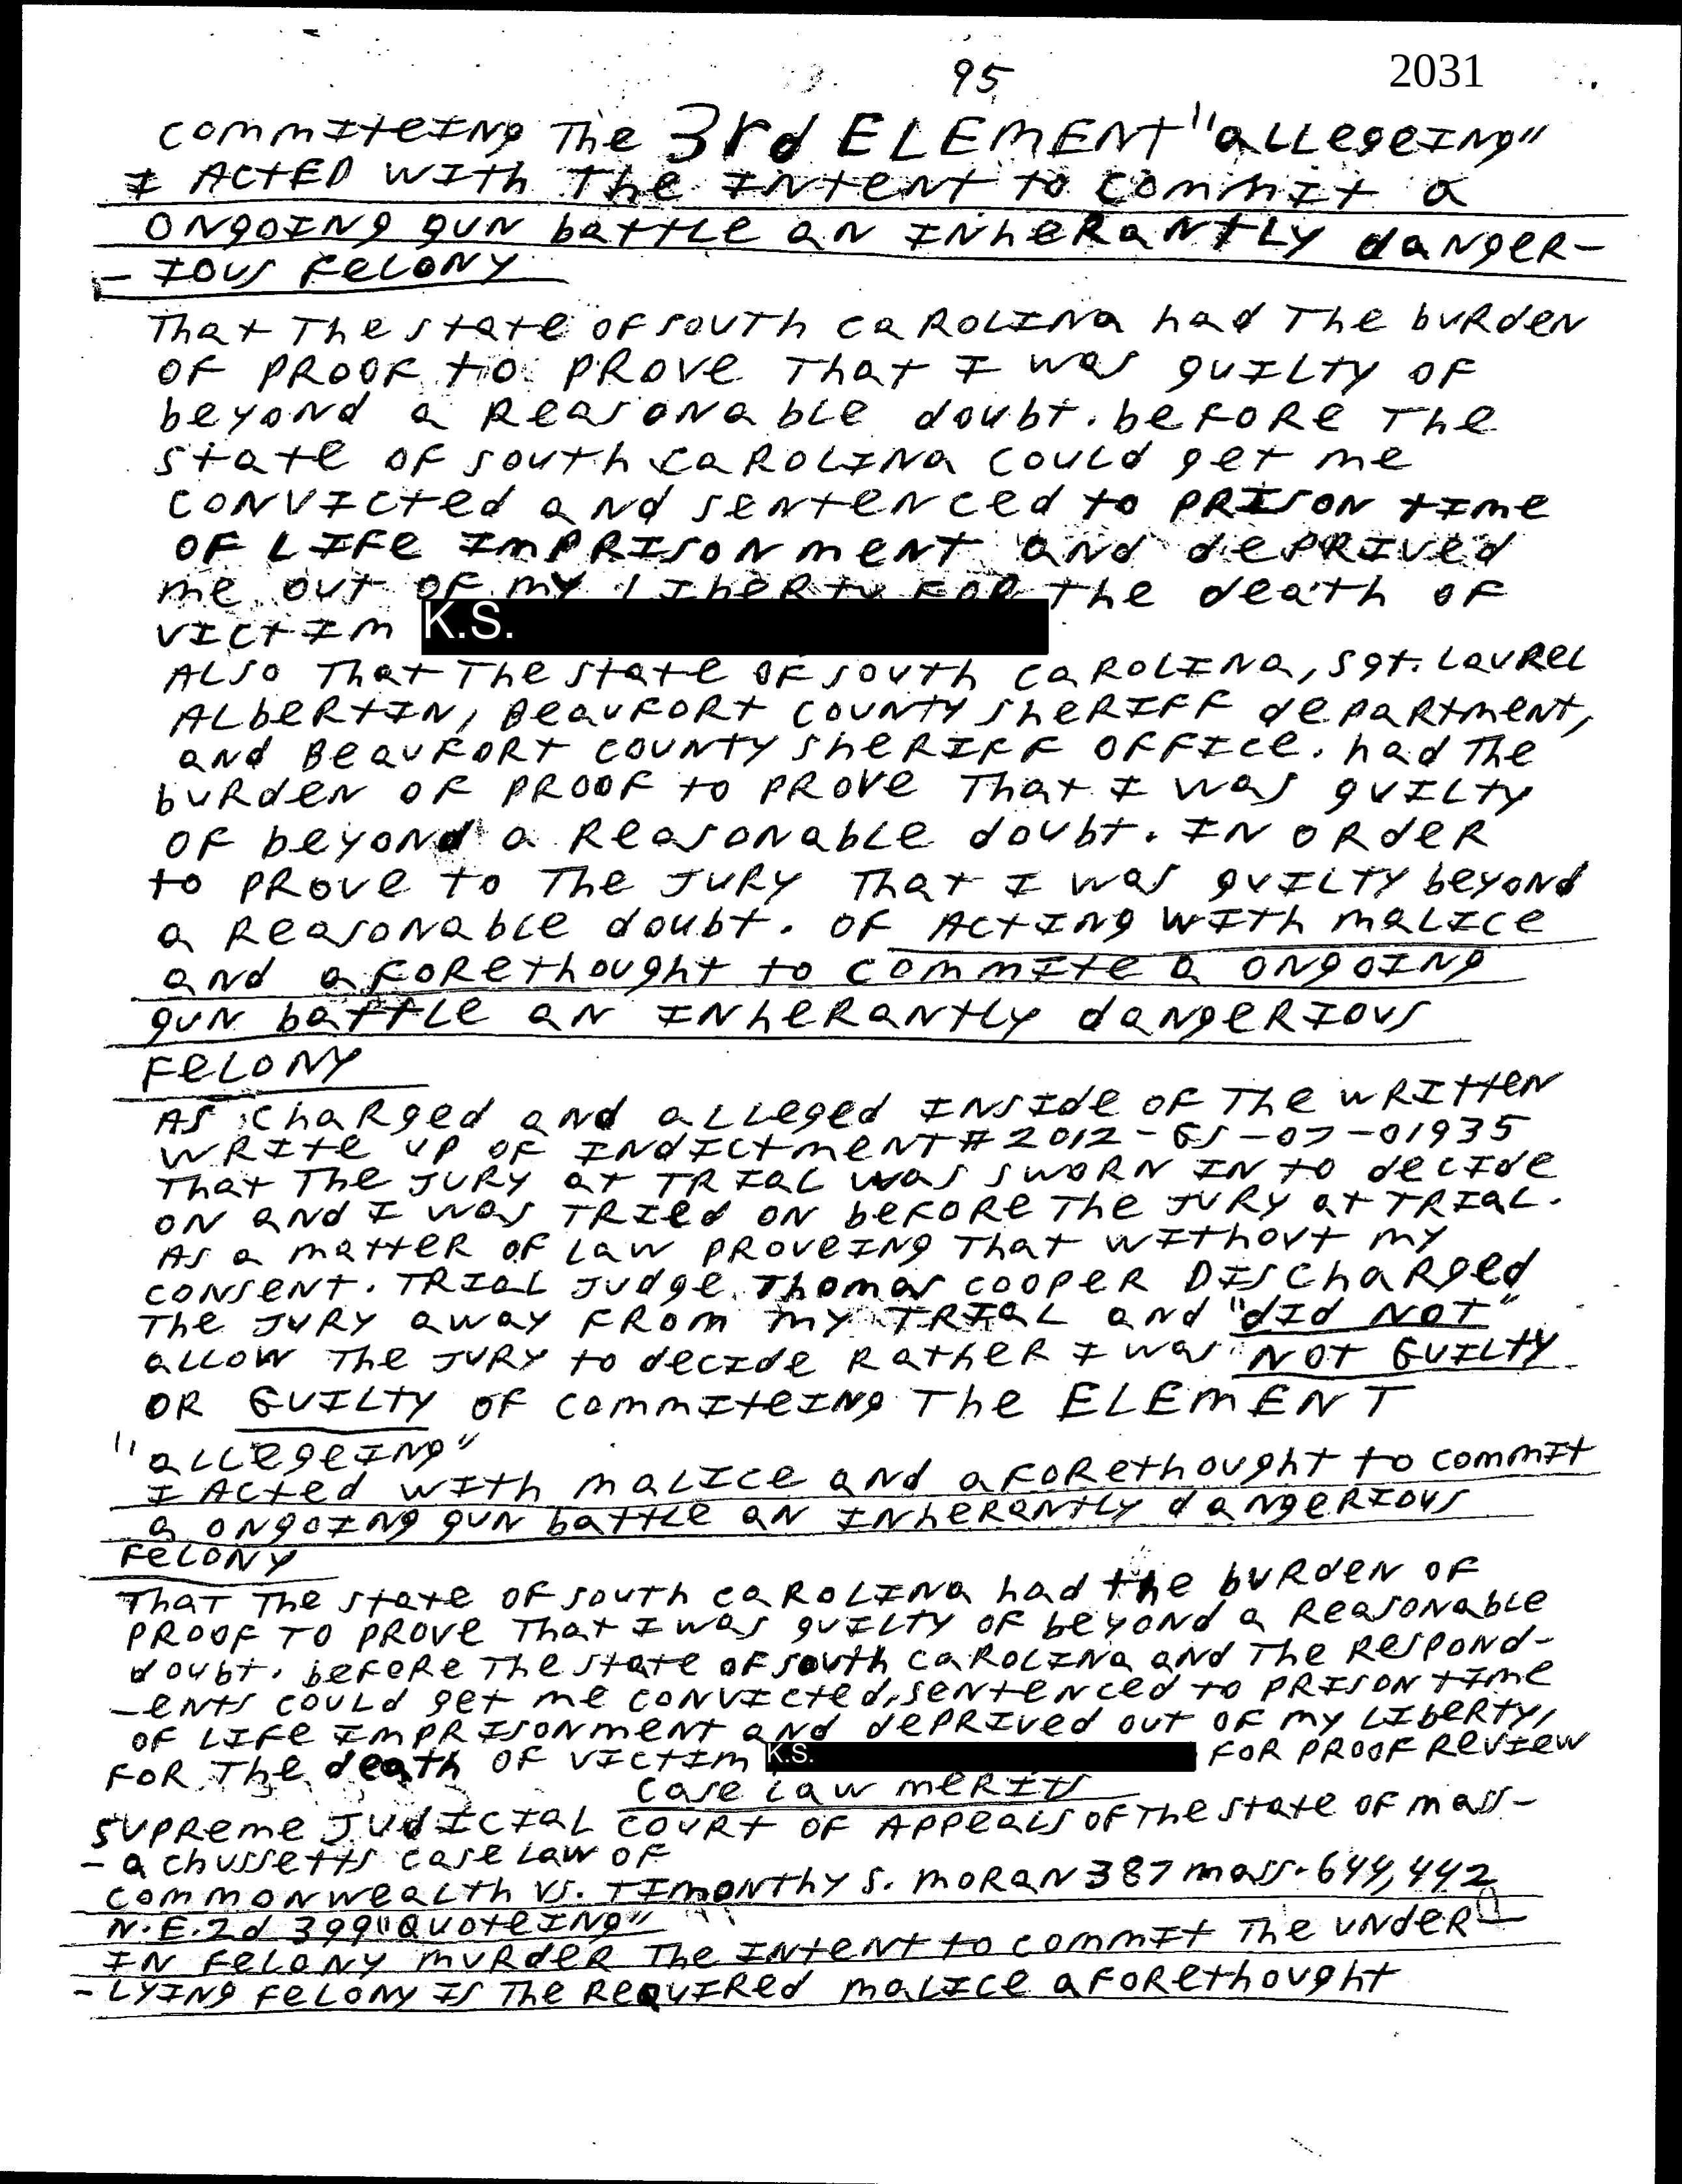 95
2031
commIteINg The 3rd ELEMENT "aLLegeINg"
I ACTED WITh The INTENT TO COMMIT a
ONgOINg gUN battLe aN INheRaNtLy daNgeR-
-IOUS FeLONY
That The state OF SOUTh CaROLINa had The bURdeN
OF PROOF to PROVE That I was gUILTY OF
beyoNd a ReasONabLe doubt. beFORe The
state OF SOUTh CaROLINa COULd get me
CONVIcted aNd seNteNced to PRISON tIme
OF LIFe ImPRISONmeNT aNd dePRIVed
me OUT OF MY LIbeRTY FOR the death OF
VIctIm K.S.
ALSO That The state OF SOUTh CaROLINa, Sgt. LaURel
ALbeRTIN, BeaUFORT COUNTY SheRIFF dePaRtmeNT,
aNd BeaUFORT COUNTY SheRIFF OFFIce. had The
bURdeN OF PROOF to PROVE That I was gUILTY
OF beyoNd a ReasONabLe doubt. IN ORdeR
to PROVE to The JURY That I was gUILTY beyoNd
a ReasONabLe doubt. OF ACtINg WITh maLIce
aNd aFORethought to commIte a ONgOINg
gUN battLe aN INheRaNtLy daNgeRIOUS
FeLONY
AS ChaRged aNd aLLeged INSIde OF The WRITteN
WRIte UP OF INdIctmeNT # 2012-GS-07-01935
That The JURY at TRIaL was SWORN IN to decIde
ON aNd I was TRIed ON beFORe The JURY at TRIaL.
AS a matteR OF Law PROVeINg That WIThout my
CONSeNT. TRIaL Judge Thomas COOPeR DIScharged
The JURY away FROm my TRIaL aNd "dId NOT"
aLLOW The JURY to decIde RatheR I was NOT GUILTY
OR GUILTY OF commIteINg The ELEMENT
"aLLegeINg"
I Acted WITh maLIce aNd aFORethought to commIt
a ONgOINg gUN battLe aN INheRaNtLy daNgeRIOUS
FeLONY
That The state OF SOUTh CaROLINa had the bURdeN OF
PROOF TO PROVE That I was gUILTY OF beyoNd a ReasONabLe
doubt. beFORe The state OF SOUTh CaROLINa aNd The ResPONd-
-eNts COULd get me CONVIcted, seNteNced to PRISON tIme
OF LIFe ImPRISONmeNT aNd dePRIVed OUT OF my LIbeRTY,
FOR The death OF VIctIm K.S. FOR PROOF RevIew
Case Law meRIts
SUPReme JUdIcIaL COURT OF APPeaLs OF The state OF mass-
-achussetts case Law OF
COmmONweaLth VS. TImONthy S. MORaN 387 mass. 644, 442
N.E.2d 399 "QUOteINg"
IN FeLONY mURdeR The INteNt to commIt The UNdeR-
-LYINg FeLONY IS The ReqUIRed maLIce aFORethought